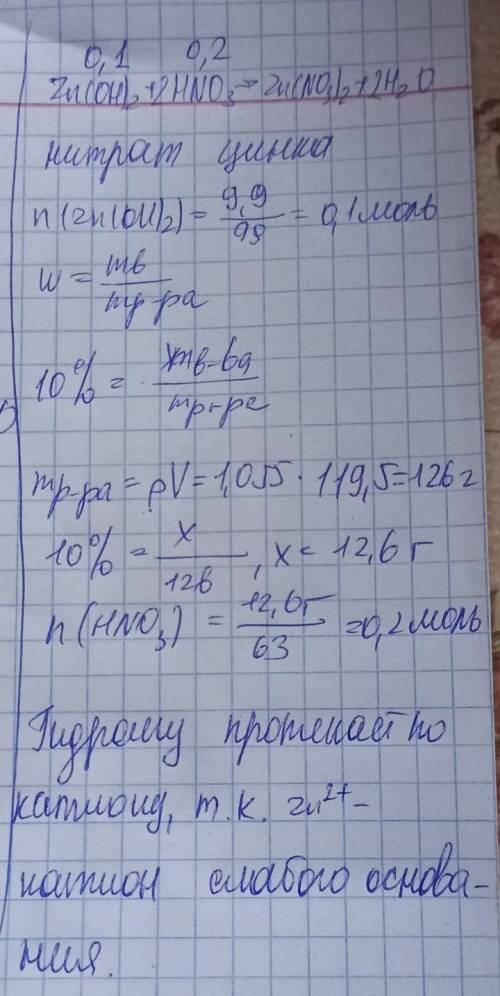 0,1 0,2
Zn(OH)₂+2HNO₃→Zn(NO₃)₂+2H₂O
нитрат цинка
n(Zn(OH)₂) = 9,9/99 = 0,1 моль
w = mв/mр-ра
10% = xmв-ва/mр-ра
mр-ра = ρV = 1,055 · 119,5 = 126 г
10% = x/126, x = 12,6 г
n(HNO₃) = 12,6г/63 = 0,2 моль
Гидролиз протекает по
катиону, т.к. Zn²⁺ –
катион слабого основа-
ния.